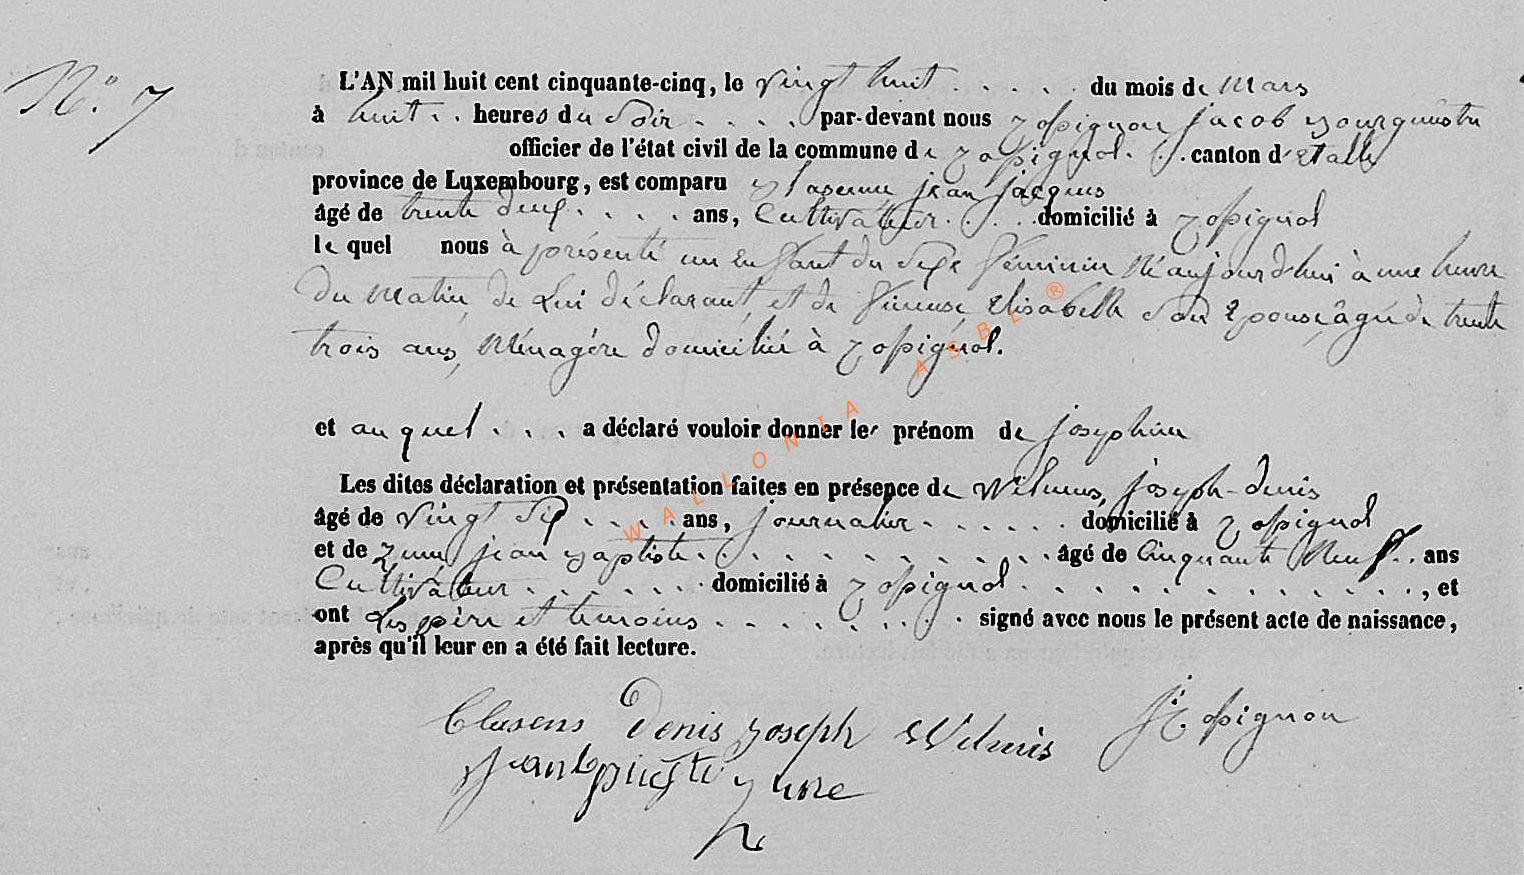 N° 7
L'AN mil huit cent cinquante-cinq, le vingt huit du mois de Mars
à huit heures du Soir par-devant nous jacob Bourguestre
officier de l'état civil de la commune de canton d'Etalle
province de Luxembourg, est comparu jean jacques
âgé de trente deux ans, Cultivateur domicilié à
le quel nous à présenté un Enfant du Sexe féminin Né aujourd'hui à une heure
du Matin, de Lui déclarant, et de Elisabelle Son Epouse, âgée de trente
trois ans, Ménagère domicilié à
et auquel a déclaré vouloir donner les prénom de josephine
Les dites déclaration et présentation faites en présence de Wilmus, joseph-denis
âgé de vingt Six ans, journalier domicilié à
et de jean Baptiste âgé de Cinquante Neuf ans
Cultivateur domicilié à , et
ont Les père et temoins signé avec nous le présent acte de naissance,
après qu'il leur en a été fait lecture.
Clasens Denis Joseph Wilmis
WALLONIA ASBL ®